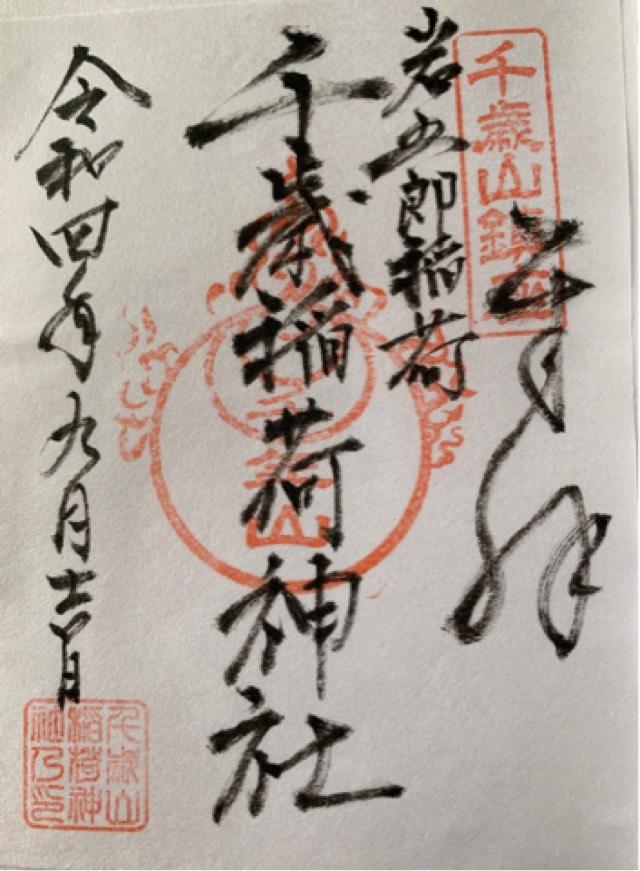 千歳山鎮座
奉拝
岩五郎稲荷
千歳稲荷神社
令和四年九月吉日
千歳山
稲荷神
社乃印